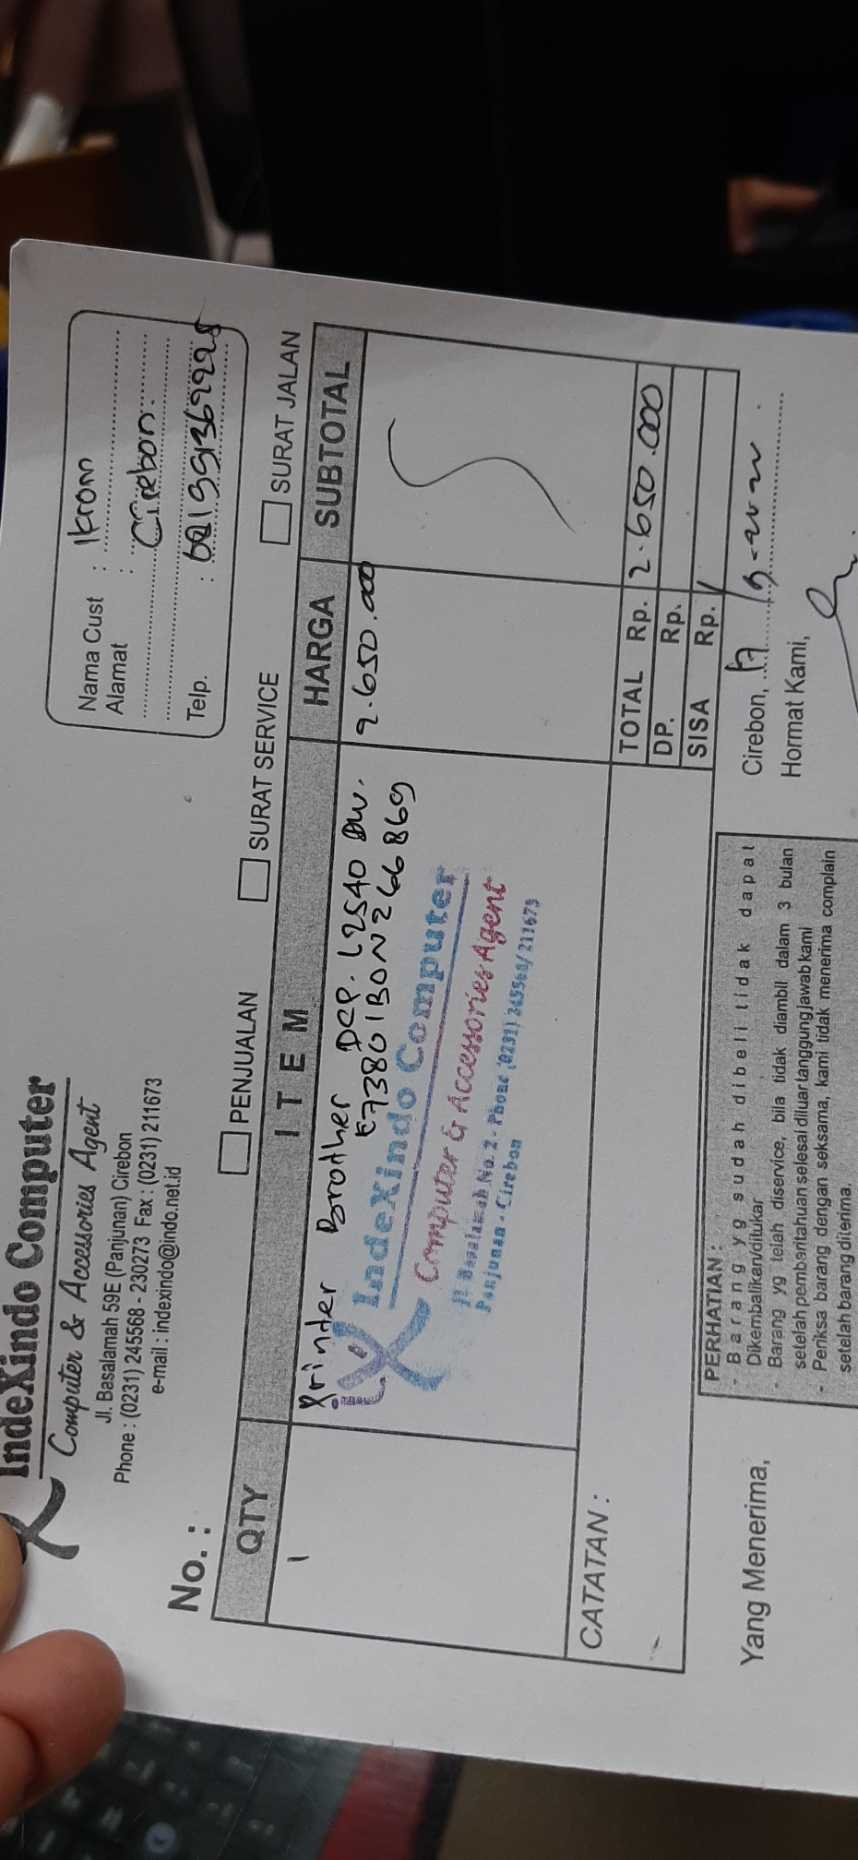 IndeXindo Computer
Computer & Accessories Agent
Jl. Basalamah 59E (Panjunan) Cirebon
Phone : (0231) 245568 - 230273 Fax : (0231) 211673
e-mail : indexindo@indo.net.id
Nama Cust : Ikrom
Alamat : Cirebon.
Telp. :
No. :
PENJUALAN SURAT SERVICE SURAT JALAN
QTY ITEM HARGA SUBTOTAL
1 Printer Brother DCP. L2540 DW. 2.650.000
E73801B0N266869
IndeXindo Computer
Computer & Accessories Agent
Jl. Basalamah No. 2 - Phone (0231) 245568/211673
Panjunan - Cirebon
CATATAN :
TOTAL Rp. 2.650.000
DP. Rp.
SISA Rp.
Yang Menerima,
PERHATIAN :
- Barang yg sudah dibeli tidak dapat
Dikembalikan/ditukar
- Barang yg telah diservice, bila tidak diambil dalam 3 bulan
setelah pemberitahuan selesai diluar tanggung jawab kami
- Periksa barang dengan seksama, kami tidak menerima complain
setelah barang diterima.
Cirebon, 17
Hormat Kami,